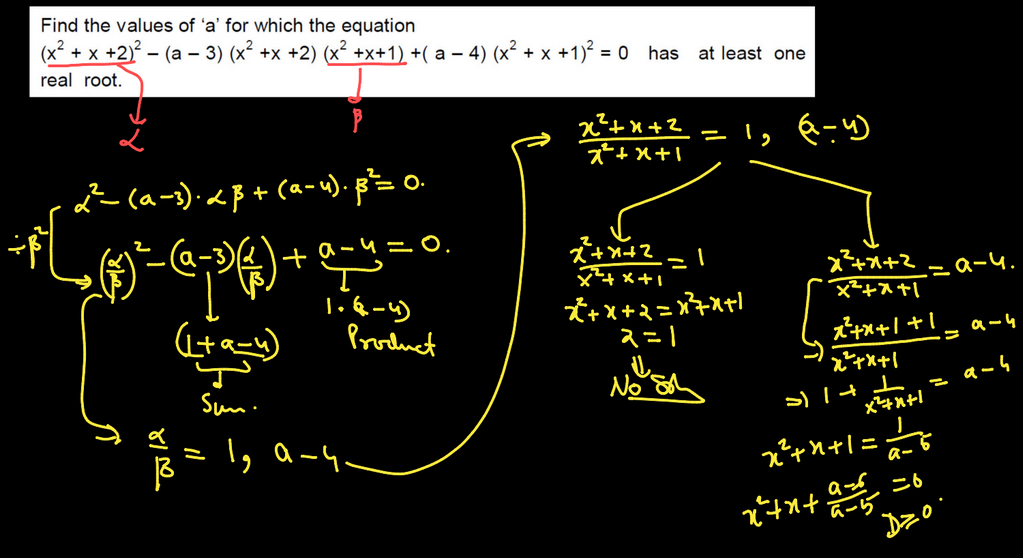 Find the values of ‘a’ for which the equation
(x² + x +2)² – (a – 3) (x² +x +2) (x² +x+1) +( a – 4) (x² + x +1)² = 0 has at least one
real root.
α
β
α² – (a–3)·αβ + (a–4)·β² = 0.
÷β²
(α/β)² – (a–3)(α/β) + a–4 = 0.
(1+a–4)
Sum.
1·(a–4)
Product
α/β = 1, a–4
(x²+x+2)/(x²+x+1) = 1, (a–4)
(x²+x+2)/(x²+x+1) = 1
x²+x+2 = x²+x+1
2 = 1
⇓
No Sol
(x²+x+2)/(x²+x+1) = a–4.
(x²+x+1+1)/(x²+x+1) = a–4
⇒ 1 + 1/(x²+x+1) = a–4
x²+x+1 = 1/(a–5)
x²+x+(a–6)/(a–5) = 0
D≥0.